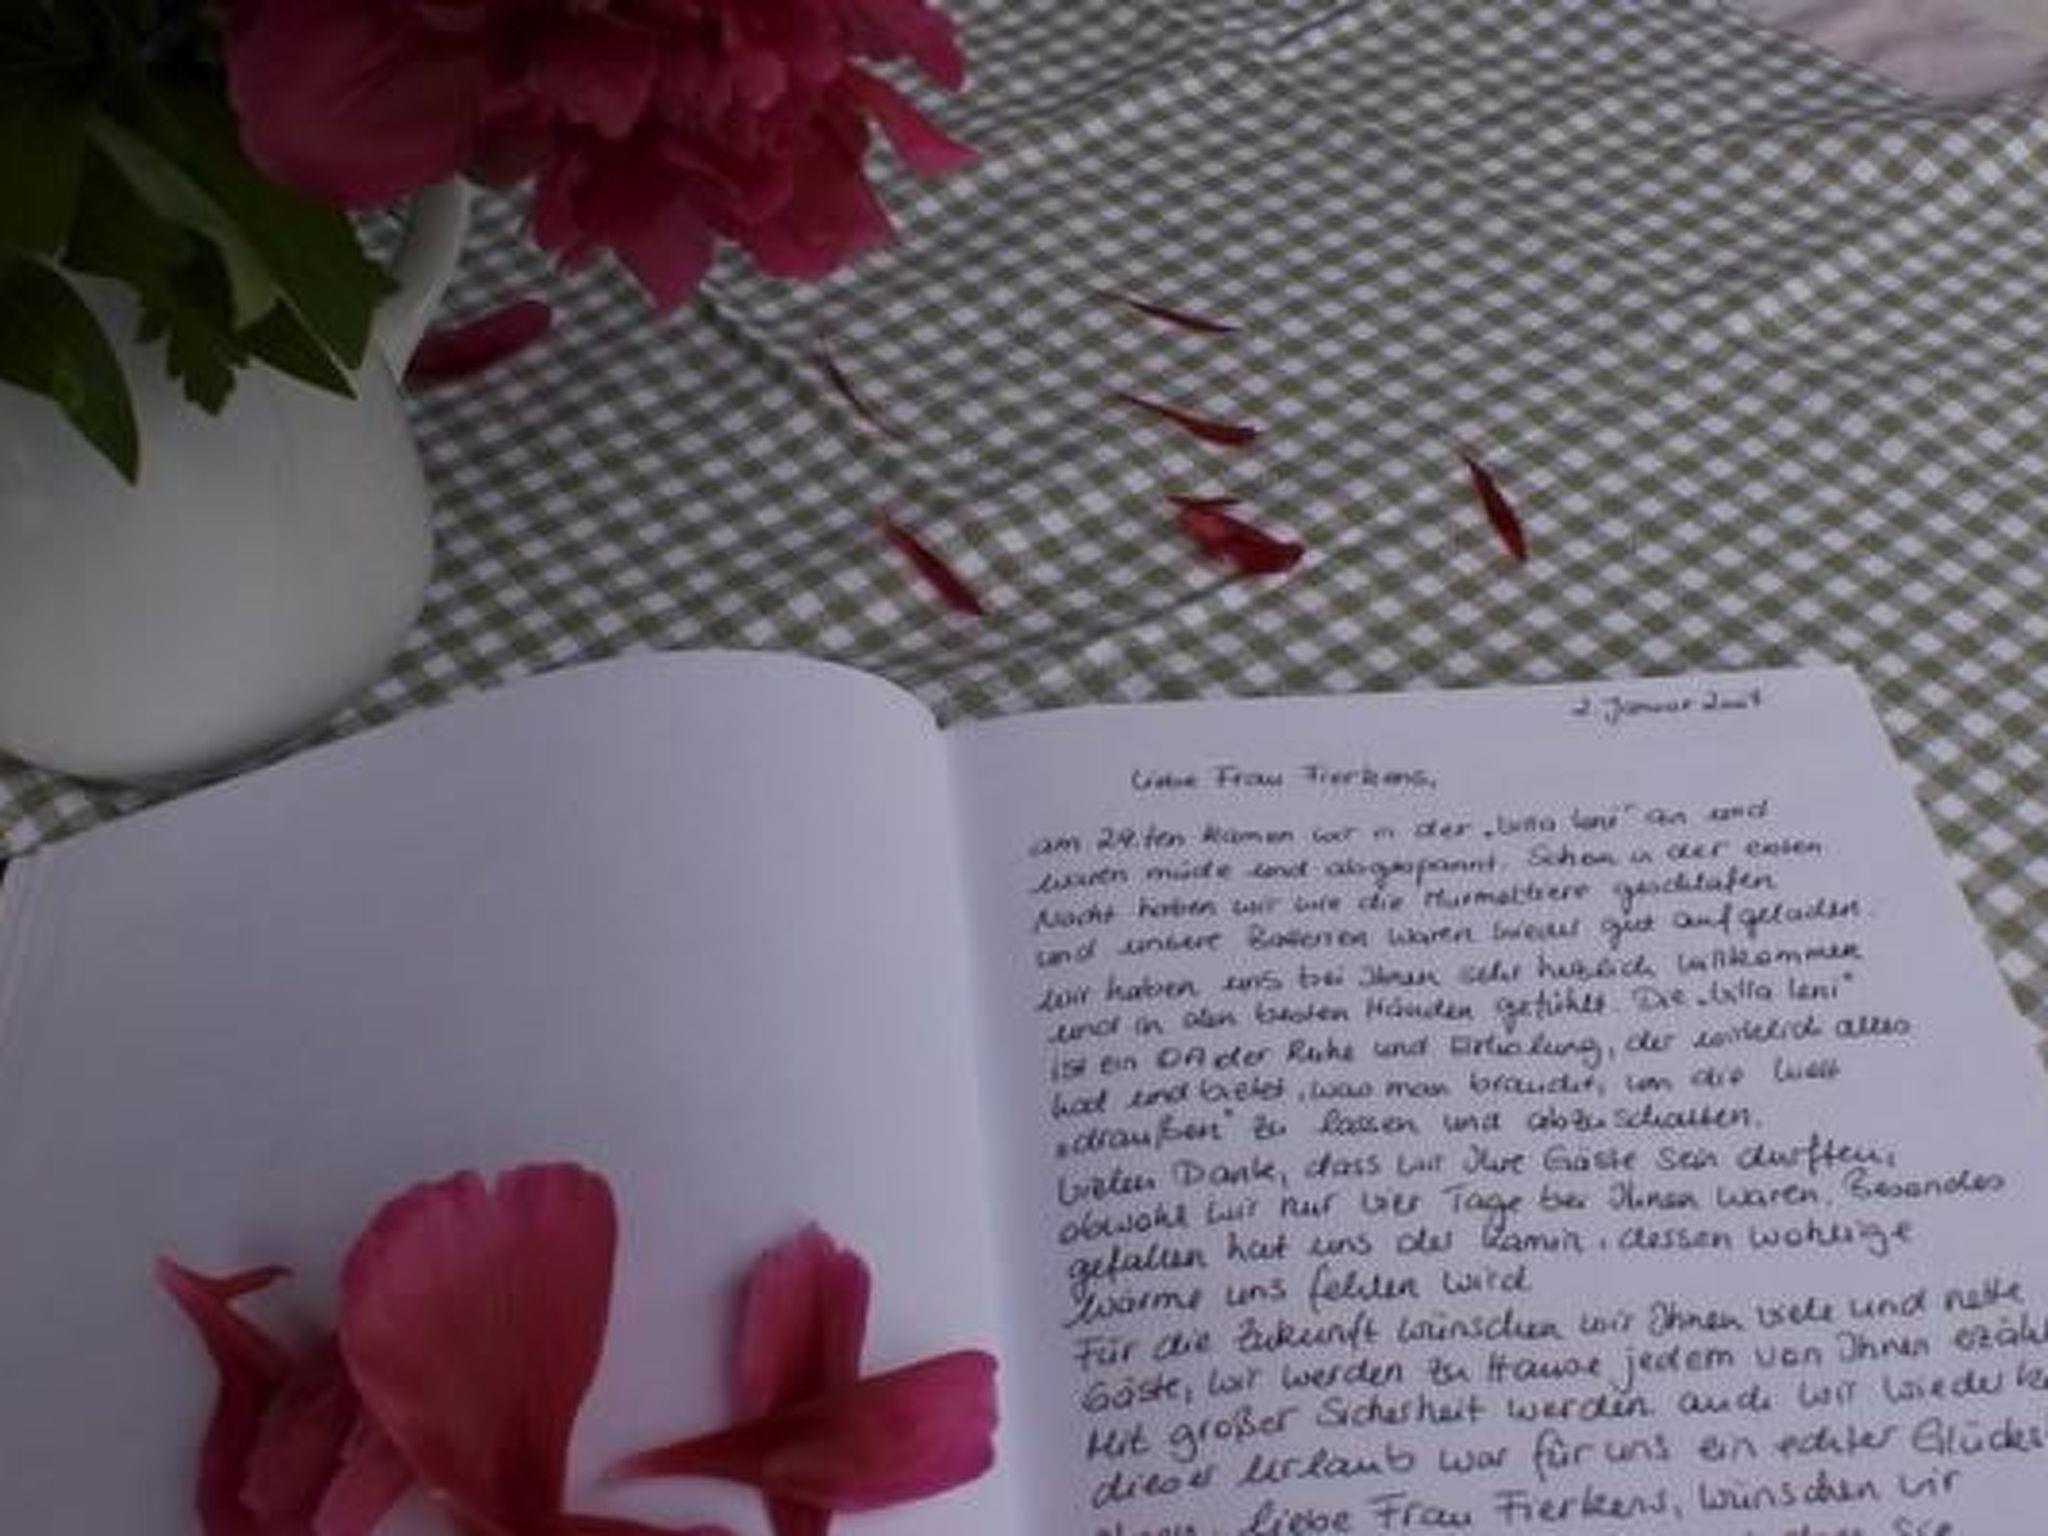 2. Januar
Liebe Frau Fierkens,
am 29.ten kamen wir in der „Villa Leni" an und
waren müde und abgespannt. Schon in der ersten
Nacht haben wir wie die Murmeltiere geschlafen
und unsere Batterien waren wieder gut aufgeladen.
Wir haben uns bei Ihnen sehr herzlich willkommen
und in den besten Händen gefühlt. Die „Villa Leni"
ist ein Ort der Ruhe und Erholung, der wirklich alles
hat und bietet, was man braucht, um die Welt
„draußen" zu lassen und abzuschalten.
Vielen Dank, dass wir Ihre Gäste sein durften,
obwohl wir nur vier Tage bei Ihnen waren. Besonders
gefallen hat uns der Kamin, dessen wohlige
Wärme uns fehlen wird
Für die Zukunft wünschen wir Ihnen viele und nette
Gäste, wir werden zu Hause jedem von Ihnen erzähl
Mit großer Sicherheit werden auch wir wieder
dieser Urlaub war für uns ein echter Glücks
liebe Frau Fierkens, wünschen wir